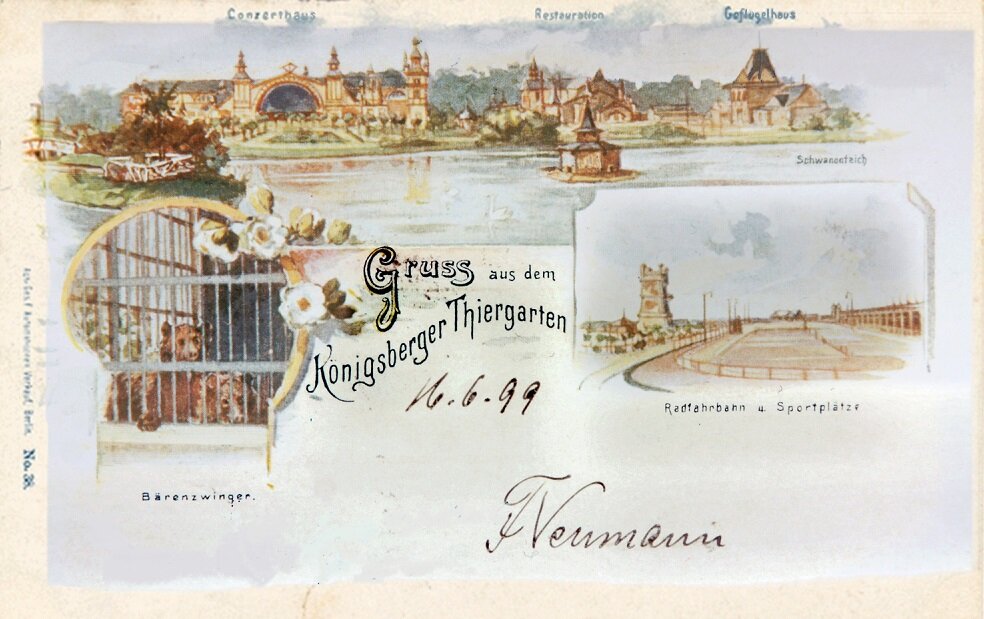 Conzerthaus
Restauration
Geflügelhaus
Schwanenteich
Gruss aus dem
Königsberger Thiergarten
16.6.99
Radfahrbahn u. Sportplätze
Bärenzwinger.
Neumann
No. 38.